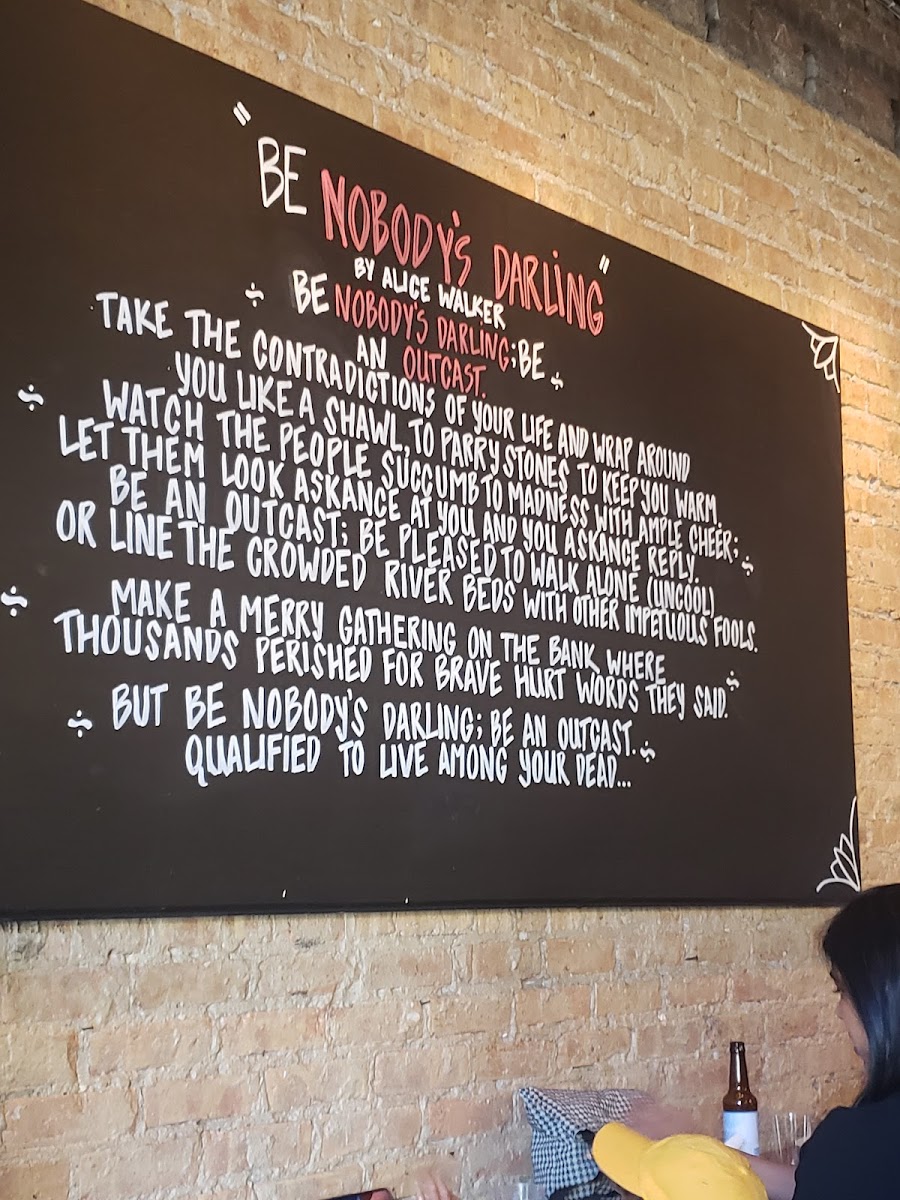 "BE NOBODY'S DARLING"
BY ALICE WALKER
BE NOBODY'S DARLING; BE
AN OUTCAST.
TAKE THE CONTRADICTIONS OF YOUR LIFE AND WRAP AROUND
YOU LIKE A SHAWL, TO PARRY STONES TO KEEP YOU WARM.
WATCH THE PEOPLE SUCCUMB TO MADNESS WITH AMPLE CHEER;
LET THEM LOOK ASKANCE AT YOU AND YOU ASKANCE REPLY.
BE AN OUTCAST; BE PLEASED TO WALK ALONE (UNCOOL)
OR LINE THE CROWDED RIVER BEDS WITH OTHER IMPETUOUS FOOLS.
MAKE A MERRY GATHERING ON THE BANK WHERE
THOUSANDS PERISHED FOR BRAVE HURT WORDS THEY SAID.
BUT BE NOBODY'S DARLING; BE AN OUTCAST.
QUALIFIED TO LIVE AMONG YOUR DEAD...